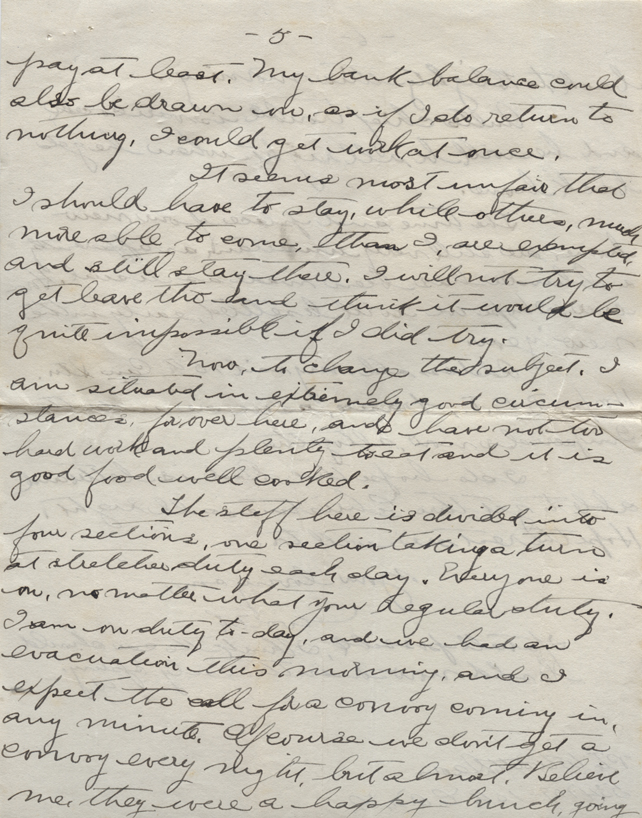 - 5 -
pay at least. My bank balance could
also be drawn on, as if I do return to
nothing, I could get work at once.
It seems most unfair that
I should have to stay, while others, much
more able to come, than I, are exempted,
and still stay there. I will not try to
get leave tho and think it would be
quite impossible if I did try.
Now, to change the subject. I
am situated in extremely good circum-
stances, for over here, and have not too
hard work and plenty to eat and it is
good food well cooked.
The staff here is divided into
four sections, one section taking a turn
at stretcher duty each day. Everyone is
on, no matter what your regular duty.
I am on duty to-day, and we had an
evacuation this morning, and I
expect the call for a convoy coming in,
any minute. Of course we don't get a
convoy every night, but almost. Believe
me, they were a happy bunch, going